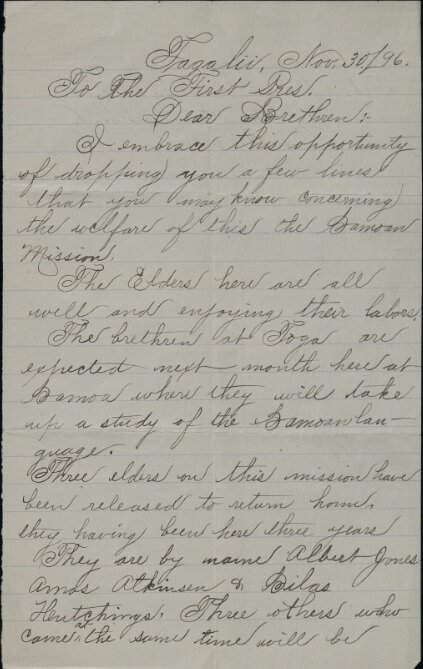 Fagalii, Nov. 30/96.
To The First Pres.
Dear Brethren:-
I embrace this opportunity
of dropping you a few lines
that you may know concerning
the welfare of this the Samoan
Mission.
The Elders here are all
well and enjoying their labors.
The brethren at Toga are
expected next month here at
Samoa where they will take
up a study of the Samoan lan-
guage.
Three elders on this mission have
been released to return home,
they having been here three years
They are by name Albert Jones
Amos Atkinsen & Silas
Hentchings. Three others who
came at the same time will be